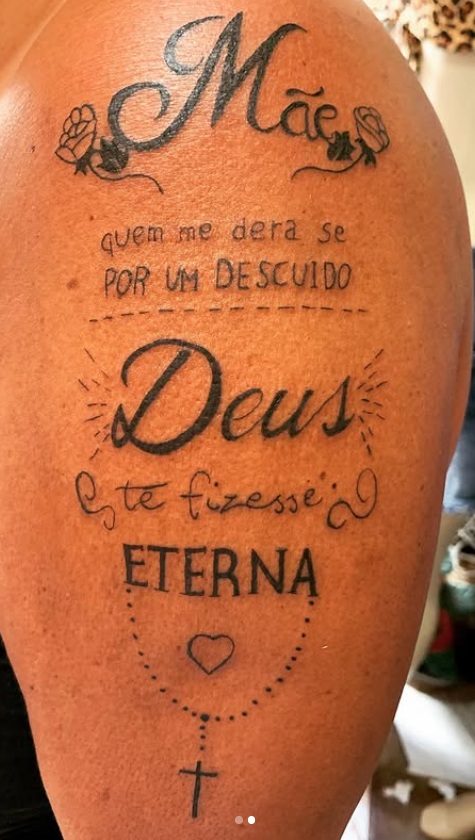 Mãe
quem me dera se
POR UM DESCUIDO
Deus
te fizesse
ETERNA